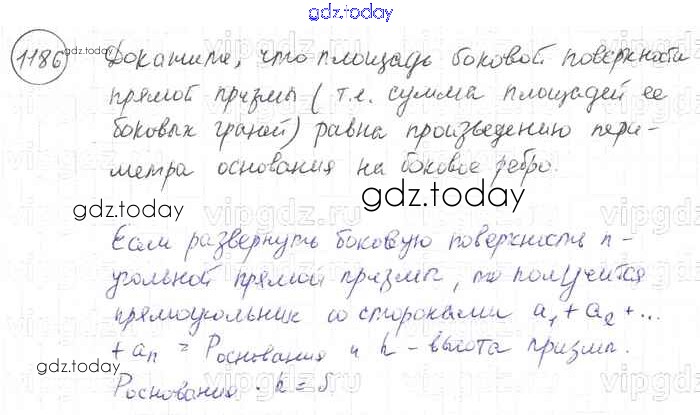 gdz.today
1186 gdz.today Докажите, что площадь боковой поверхности
прямой призмы (т.е. сумма площадей ее
боковых граней) равна произведению пери-
метра основания на боковое ребро.
gdz.today gdz.today
vipgdz.ru
Если развернуть боковую поверхность n-
угольной прямой призмы, то получится
прямоугольник со сторонами a₁ + a₂ + ...
+ aₙ = Pоснования и h - высота призмы.
Pоснования · h = S.
gdz.today